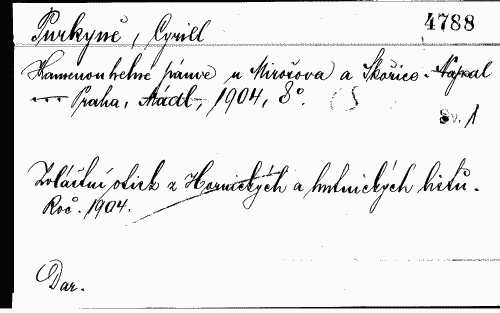 Purkyně, Cyrill 4788
Kamenouhelné pánve u Mirošova a Skořice. Napsal
... Praha, Mádl, 1904, 8°.
Sv. 1
Zvláštní otisk z Hornických a hutnických listů.
Roč. 1904.
Dar.